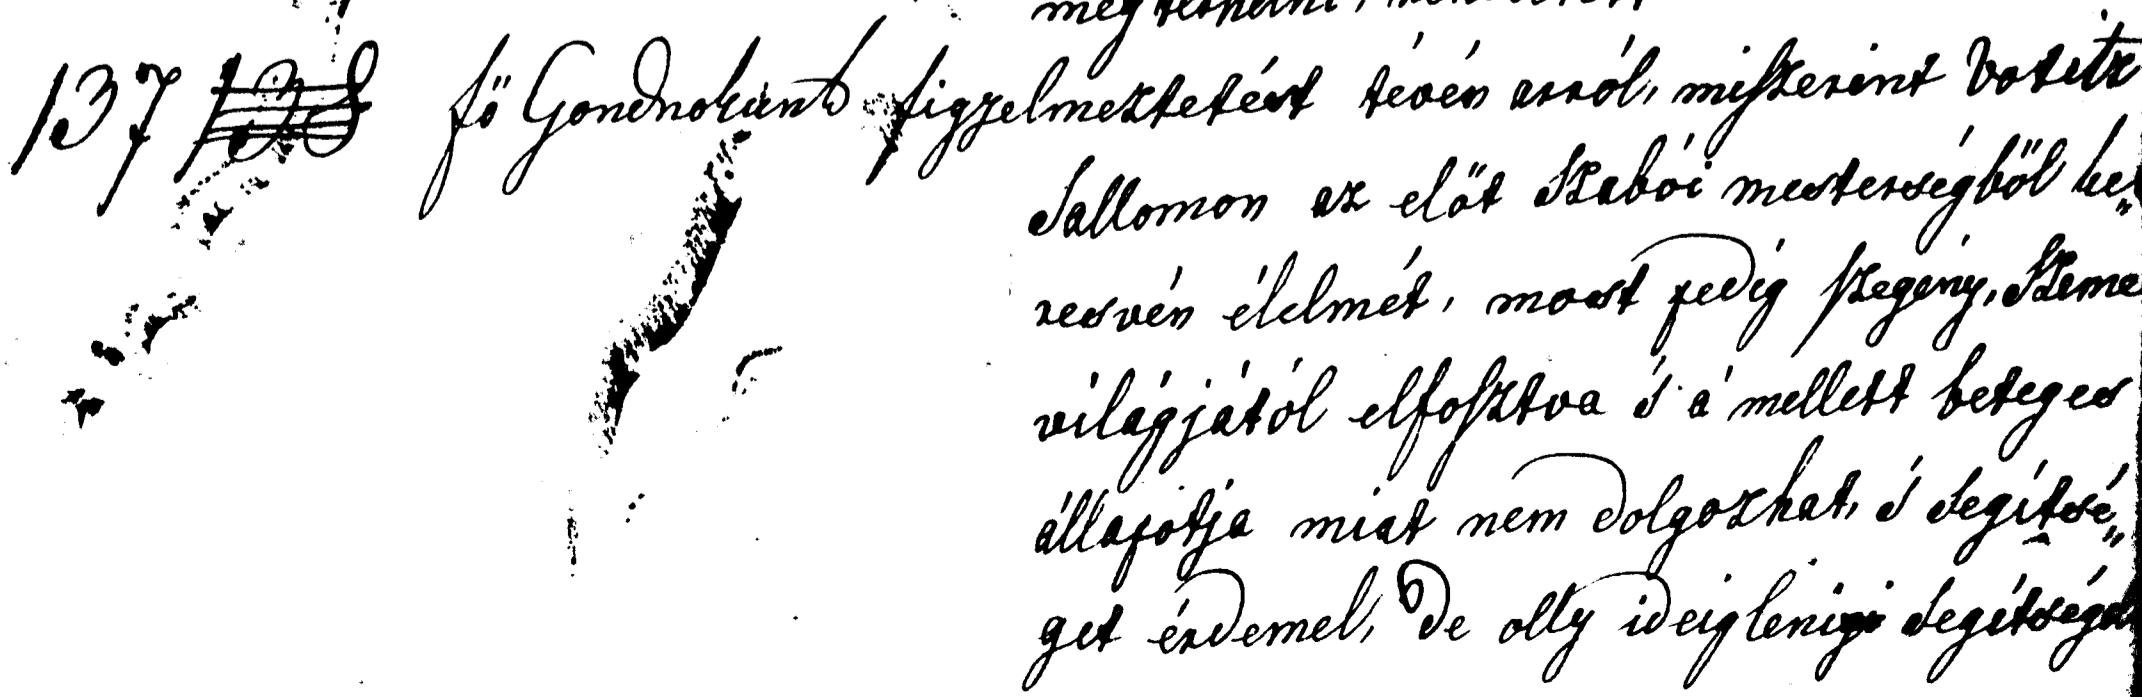 137 138 fö Gondnokunk figyelmeztetést tévén arról, miszerint Votitz
Sallomon az előt Szabói mesterségből ke„
resvén élelmét, most pedig szegény, Szeme
világjától elfosztva 's a' mellett beteges
állapotja miat nem dolgozhat, 's Segítsé„
get érdemel, De olly ideiglenigi Segítséget